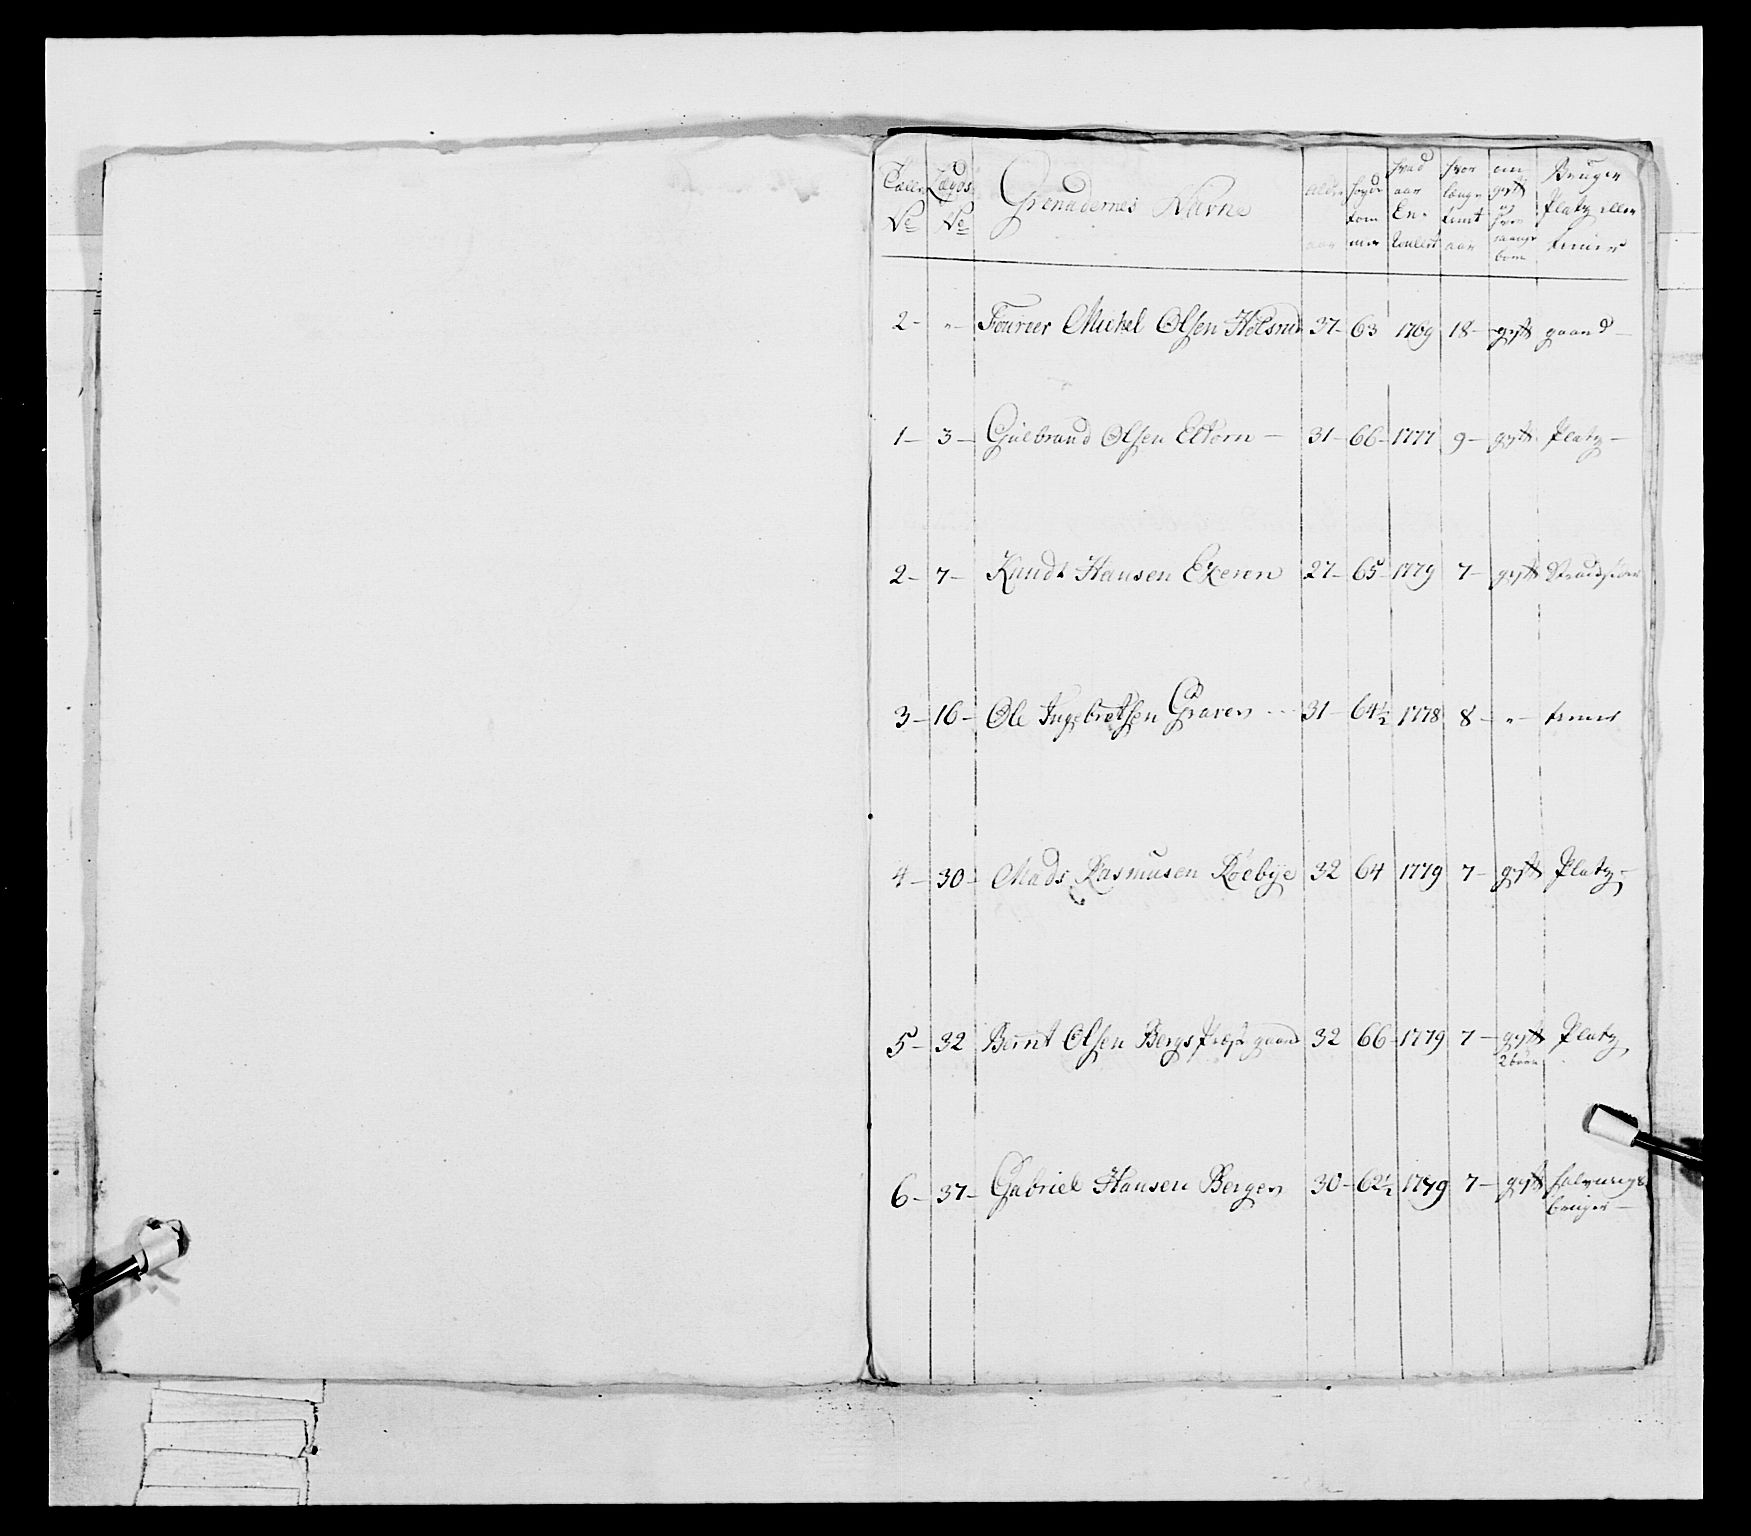 Tæll: No Lægds No Grenadernes Navne alder aar høyde tommer hvad aar Enroulert hvor længe tient aar om gift og hvor mange born Bruger Platz eller tiener
2 - " - Fourier Michel Olsen 37 - 63 1769 18 - gift gaard -
1 - 3 - Gulbrand Olsen Eltom - 31 - 66 - 1777 9 - gift Platz -
2 - 7 - Knudt Hansen Ekeren 27 - 65 - 1779 7 - gift
3 - 16 - Ole Ingebretsen Graven - 31 - 64½ 1778 8 - " - tiener
4 - 30 - Mads Rasmusen Roebÿe 32 64 1779 7 - gift Platz -
5 - 32 Bernt Olsen Bergs Præste gaard 32 66 - 1779 7 - gift Platz
2 børn
6 - 37 - Gabriel Hansen Bergen 30 - 62½ 1779 7 - gift
bruger -